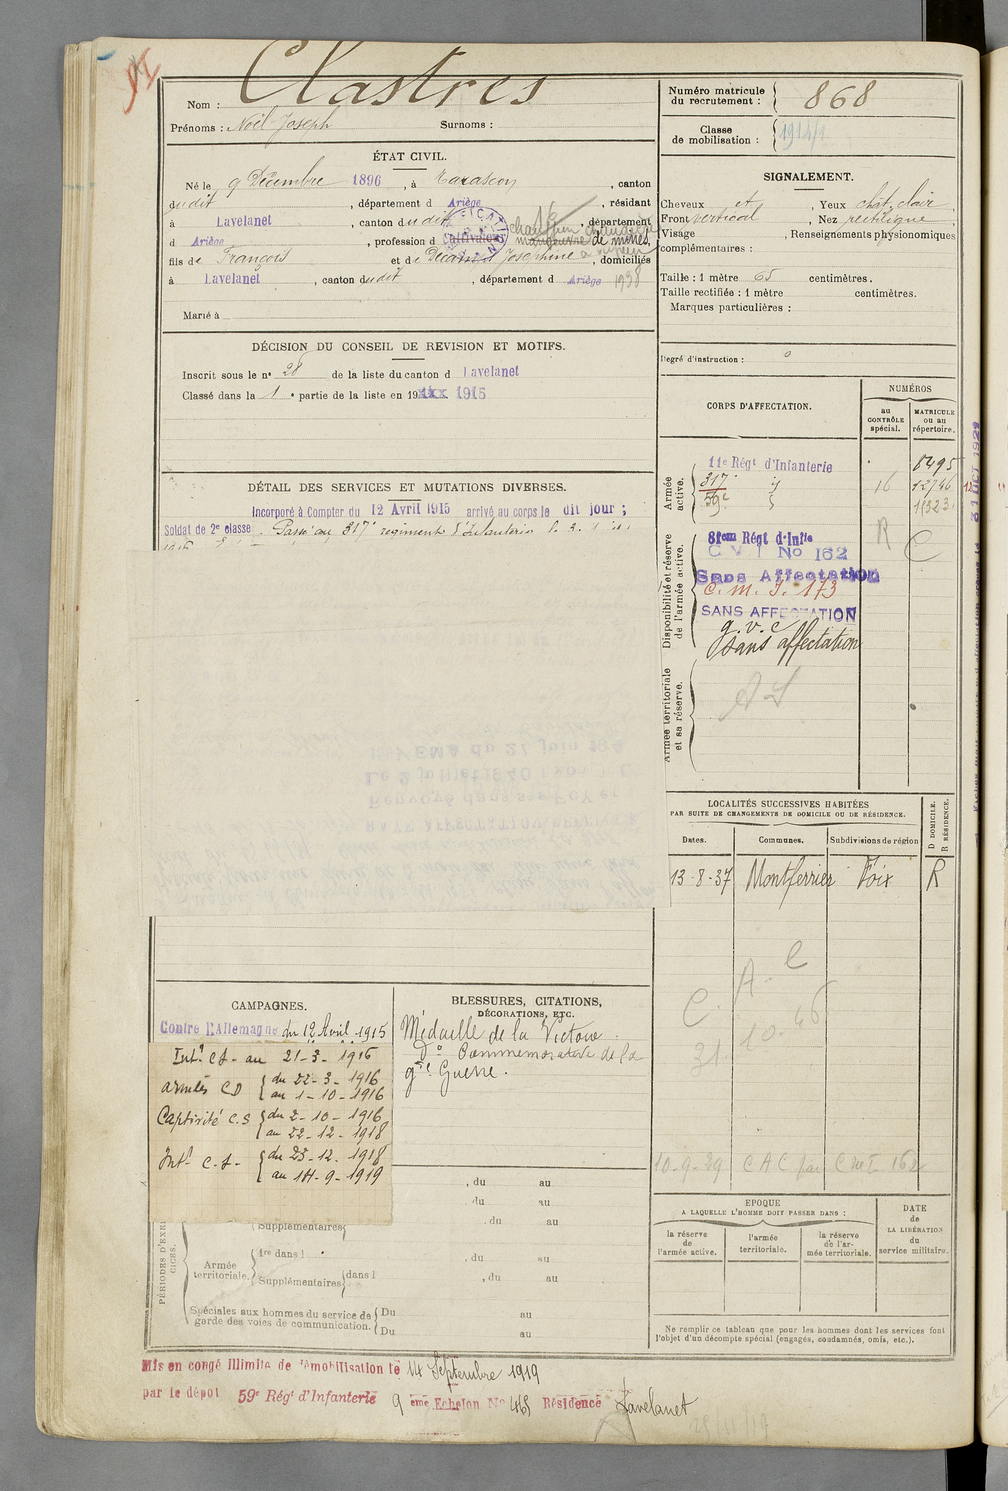 Nom : Clastres
Prénoms : Noël Joseph Surnoms :
ÉTAT CIVIL.
Né le 9 Décembre 1896, à Tarascon, canton
dudit, département d Ariège, résidant
à Lavelanet, canton dudit, département
d Ariège, profession d Cultivateur manœuvre de mines,
fils de François et de Josephine, domiciliés
à Lavelanet, canton dudit, département d Ariège 1938
Marié à
DÉCISION DU CONSEIL DE REVISION ET MOTIFS.
Inscrit sous le n° 28 de la liste du canton d Lavelanet
Classé dans la 1 e partie de la liste en 19 1915
DÉTAIL DES SERVICES ET MUTATIONS DIVERSES.
Incorporé à Compter du 12 Avril 1915 arrivé au corps le dit jour ;
Soldat de 2e classe. Passé au 317e regiment d'Infanterie
CAMPAGNES.
Contre l'Allemagne du 12 Avril 1915
Intr C.S - au 21-3-1916
armées CD { du 22-3-1916
au 1-10-1916
Captivité C.S { du 2-10-1916
au 22-12-1918
Intr C.S - { du 23-12-1918
au 14-9-1919
BLESSURES, CITATIONS,
DÉCORATIONS, ETC.
Médaille de la Victoire
d° Commemorative de la
gde Guerre.
, du au
, du au
, du au
, du au
, du au
PÉRIODES D'EXER
CICES.
Supplémentaires
Armée
territoriale.
1re dans l
Supplémentaires dans l
Spéciales aux hommes du service de
garde des voies de communication.
Du au
Du au
Mis en congé illimité de démobilisation le 14 Septembre 1919
par le dépôt 59e Régt d'Infanterie 9 eme Echelon No 465 Résidence Lavelanet
Numéro matricule
du recrutement : 868
Classe
de mobilisation : 1914/1
SIGNALEMENT.
Cheveux et, Yeux chat. clair
Front vertical, Nez rectiligne
Visage, Renseignements physionomiques
complémentaires :
Taille : 1 mètre 65 centimètres.
Taille rectifiée : 1 mètre centimètres.
Marques particulières :
Degré d'instruction : 0
CORPS D'AFFECTATION.
NUMÉROS
au
CONTRÔLE
spécial.
MATRICULE
ou au
répertoire.
Armée
active.
11e Régt d'Infanterie 8495
317e 16 12746
59e 11323
Disponibilité et réserve
de l'armée active.
81em Régt d'Infie R C
C V I No 162
Sans Affectation
C. M. I. 173
SANS AFFECTATION
g. v. c
sans affectation
Armée territoriale
et sa réserve.
A S
LOCALITÉS SUCCESSIVES HABITÉES
PAR SUITE DE CHANGEMENTS DE DOMICILE OU DE RÉSIDENCE.
Dates.
Communes.
Subdivisions de région
D DOMICILE.
R RÉSIDENCE.
13-8-37 Montferrier Foix R
10-9-39 CAC par
EPOQUE
A LAQUELLE L'HOMME DOIT PASSER DANS :
la réserve
de
l'armée active.
l'armée
territoriale.
la réserve
de l'ar-
mée territoriale.
DATE
de
LA LIBÉRATION
du
service militaire.
Ne remplir ce tableau que pour les hommes dont les services font
l'objet d'un décompte spécial (engagés, condamnés, omis, etc.).